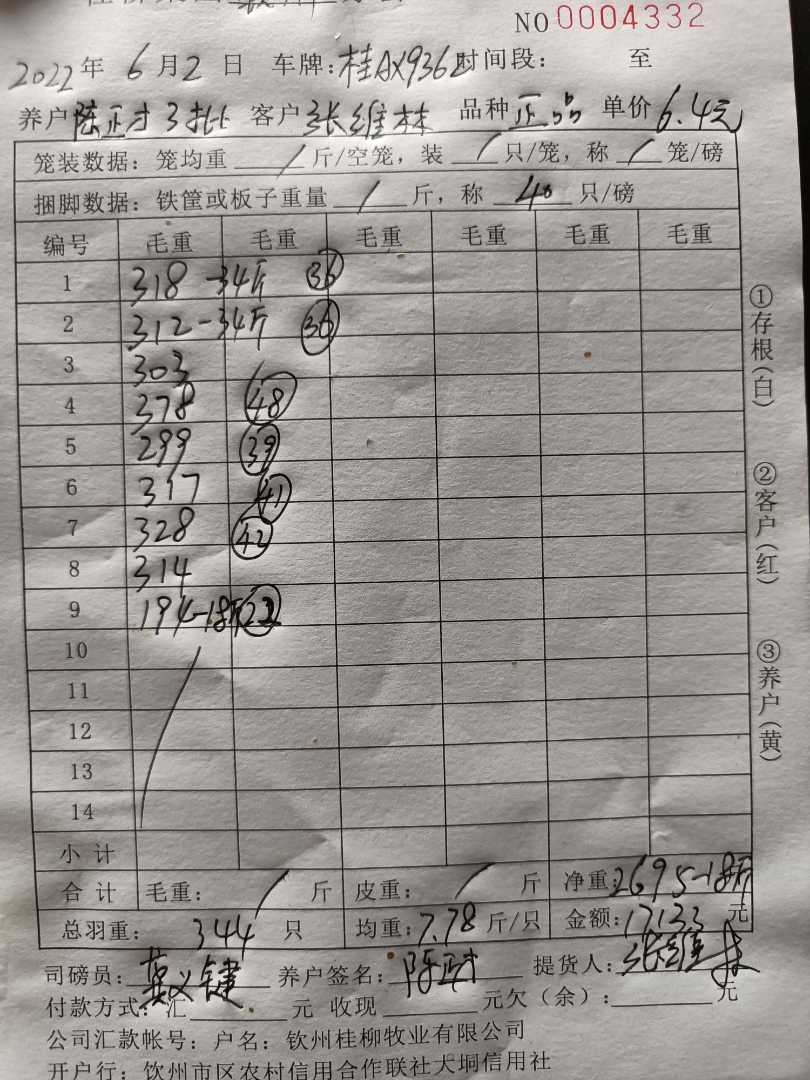 NO 0004332
2022年 6月2日 车牌:桂AX9362 时间段: 至
养户 陈正才3批 客户 张维林 品种 正品 单价 6.4元
笼装数据: 笼均重 / 斤/空笼, 装 / 只/笼, 称 / 笼/磅
捆脚数据: 铁筐或板子重量 / 斤, 称 40 只/磅
编号 毛重 毛重 毛重 毛重 毛重 毛重
1 318 -34斤 36
2 312 -34斤 36
3 303 /
4 378 48
5 299 39
6 317 41
7 328 42
8 314
9 194-18斤 22
10
11
12
13
14
小计
合计 毛重: / 斤 皮重: / 斤 净重: 2695-18斤
总羽重: 344 只 均重: 7.78 斤/只 金额: 17133 元
司磅员: 莫义键 养户签名: 陈正才 提货人: 张维林
付款方式: 汇 元 收现 元欠(余): 元
公司汇款帐号: 户名: 钦州桂柳牧业有限公司
开户行: 钦州市区农村信用合作联社大垌信用社
①存根(白)
②客户(红)
③养户(黄)